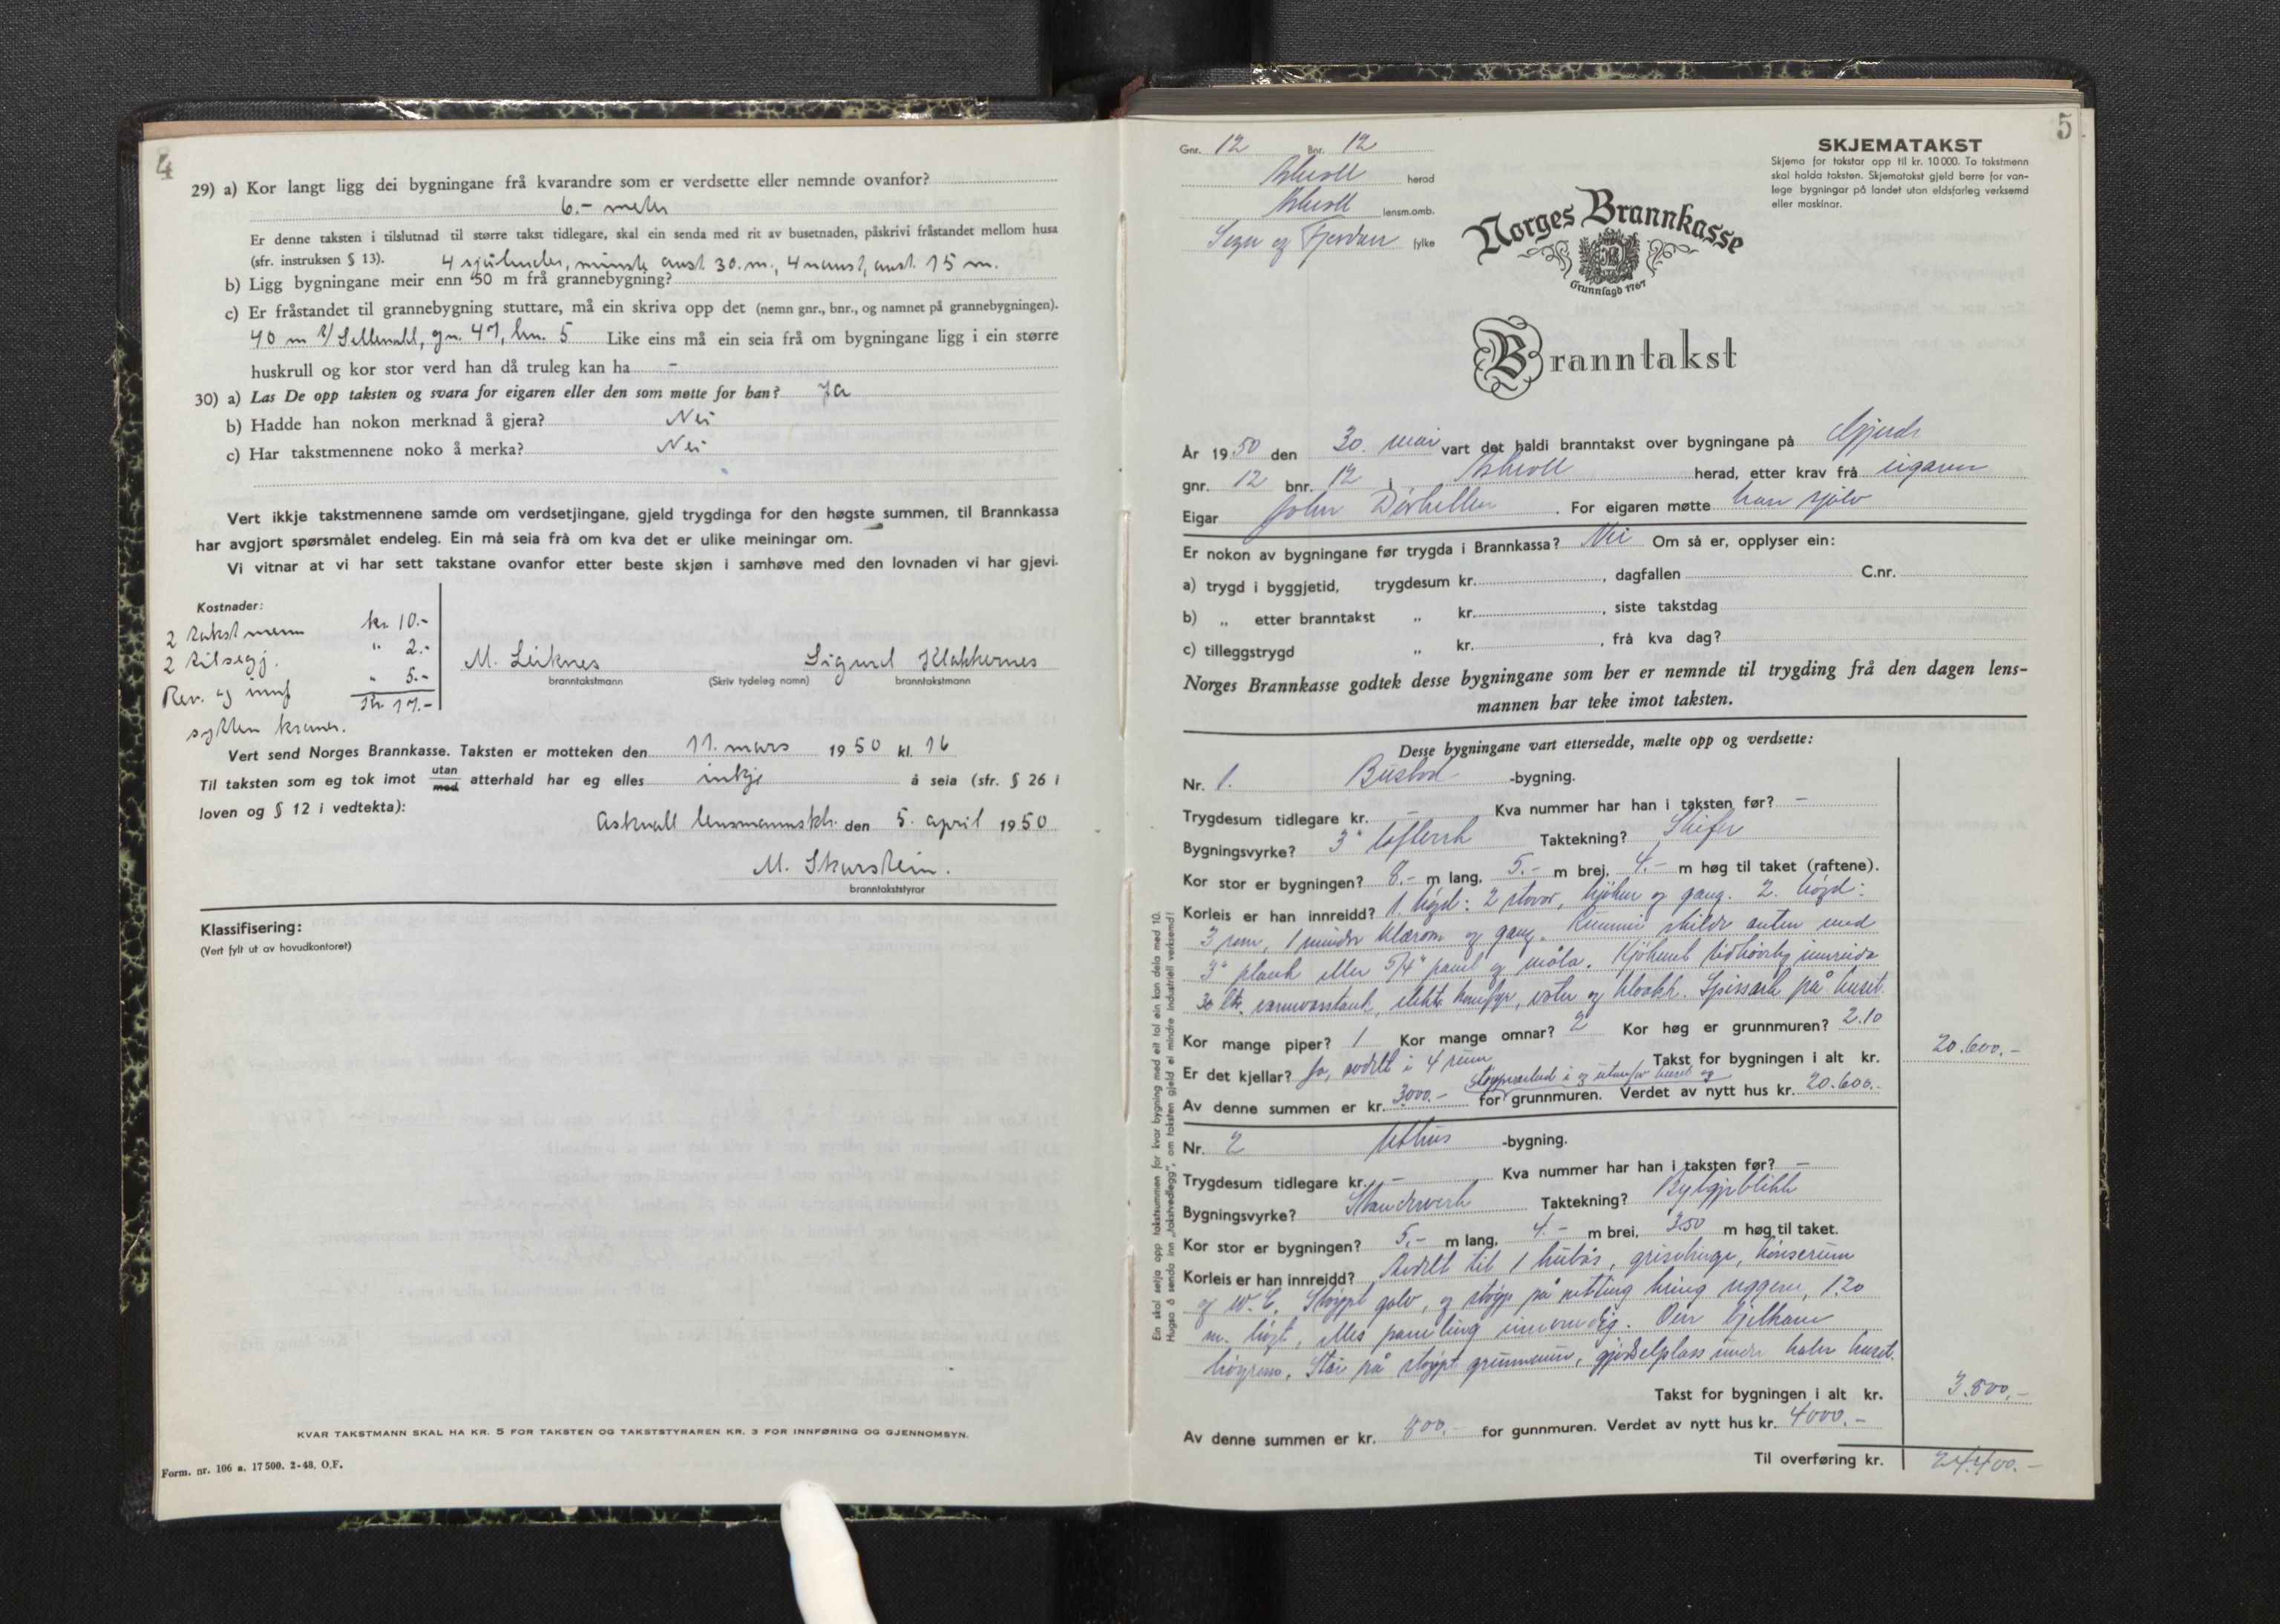 4
29) a) Kor langt ligg dei bygningane frå kvarandre som er verdsette eller nemnde ovanfor?
6.- meter
Er denne taksten i tilslutnad til større takst tidlegare, skal ein senda med rit av busetnaden, påskrivi fråstandet mellom husa
(sfr. instruksen § 13). 4 sjøbuder, minste avst. 30. m., 4 naust, avst. 15 m.
b) Ligg bygningane meir enn 50 m frå grannebygning?
c) Er fråstandet til grannebygning stuttare, må ein skriva opp det (nemn gnr., bnr., og namnet på grannebygningen).
40 m gn. 47, bn. 5 Like eins må ein seia frå om bygningane ligg i ein større
huskrull og kor stor verd han då truleg kan ha -
30) a) Las De opp taksten og svara for eigaren eller den som møtte for han? Ja
b) Hadde han nokon merknad å gjera? Nei
c) Har takstmennene noko å merka? Nei
Vert ikkje takstmennene samde om verdsetjingane, gjeld trygdinga for den høgste summen, til Brannkassa
har avgjort spørsmålet endeleg. Ein må seia frå om kva det er ulike meiningar om.
Vi vitnar at vi har sett takstane ovanfor etter beste skjøn i samhøve med den lovnaden vi har gjevi.
Kostnader:
2 takstmenn kr. 10.-
2 tilsegj. " 2.-
Rev. og innf " 5.-
Kr. 17.-
sytten kroner.
M. Leiknes Sigurd Klakkernes
branntakstmann (Skriv tydeleg namn) branntakstmann
Vert send Norges Brannkasse. Taksten er motteken den 11. mars 1950 kl. 16
Til taksten som eg tok imot utan med atterhald har eg elles inkje å seia (sfr. § 26 i
loven og § 12 i vedtekta):
Askvoll lensmannsktr. den 5. april 1950
M. Skarstein.
branntakststyrar
Klassifisering:
(Vert fylt ut av hovudkontoret)
KVAR TAKSTMANN SKAL HA KR. 5 FOR TAKSTEN OG TAKSTSTYRAREN KR. 3 FOR INNFØRING OG GJENNOMSYN.
Form. nr. 106 a. 17500. 2-48. O.F.
5
Gnr. 12 Bnr. 12
Askvoll herad
Askvoll lensm.omb.
Sogn og Fjordane fylke
SKJEMATAKST
Skjema for takstar opp til kr. 10 000. To takstmenn
skal halda taksten. Skjematakst gjeld berre for van-
lege bygningar på landet utan eldsfarleg verksemd
eller maskinar.
Norges Brannkasse
Grunnlagd 1767
Branntakst
År 1950 den 30. mai vart det haldi branntakst over bygningane på
gnr. 12 bnr. 12 i Askvoll herad, etter krav frå eigaren
Eigar John Dörhellen. For eigaren møtte han sjølv
Er nokon av bygningane før trygda i Brannkassa? Nei Om så er, opplyser ein:
a) trygd i byggjetid, trygdesum kr. , dagfallen C.nr.
b) „ etter branntakst „ kr. , siste takstdag
c) tilleggstrygd „ kr. , frå kva dag?
Norges Brannkasse godtek desse bygningane som her er nemnde til trygding frå den dagen lens-
mannen har teke imot taksten.
Desse bygningane vart ettersedde, mælte opp og verdsette:
Nr. 1. Bustad -bygning.
Trygdesum tidlegare kr. - Kva nummer har han i taksten før? -
Bygningsvyrke? 3" lafteverk Taktekning? Skifer
Kor stor er bygningen? 8.- m lang, 5.- m brei, 4.- m høg til taket (raftene).
Korleis er han innreidd? 1 høgd: 2 stover, kjøken og gang. 2. høgd:
3 rom, 1 mindre klærom og gang. Rummi skilde anten med
3" plank eller 5/4" panel og måla. Kjøkenet tidhøveleg innreidd
30 ltr. varmvasstank, elektr. komfyr, vatn og kloakk. Spissark på huset.
Kor mange piper? 1 Kor mange omnar? 2 Kor høg er grunnmuren? 2.10
Er det kjellar? Ja, avdelt i 4 rum Takst for bygningen i alt kr. 20.600.-
støypearbeid i og utanfor huset og
Av denne summen er kr. 3000.- for grunnmuren. Verdet av nytt hus kr. 20.600.-
Nr. 2 Uthus -bygning.
Trygdesum tidlegare kr. - Kva nummer har han i taksten før? -
Bygningsvyrke? Standerverk Taktekning? Bylgjeblikk
Kor stor er bygningen? 5.- m lang, 4.- m brei, 3.50 m høg til taket.
Korleis er han innreidd? Avdelt til 1 kubås, grisebinge, hønserum
og W.C. Støypt golv, og støyp på netting kring veggene, 1.20
m. høgt, elles paneling innvendig. Over bjelkane
høyrom. Står på støypt grunnmur, gjødselplass under halve huset.
Takst for bygningen i alt kr. 3.800.-
Av denne summen er kr. 800.- for gunnmuren. Verdet av nytt hus kr. 4000.-
Til overføring kr. 24.400.-
Ein skal setja opp takstsummen for kvar bygning med eit tal ein kan dela med 10.
Hugsa å senda inn „takstvedlegg", om taksten gjeld ei mindre industriell verksemd!